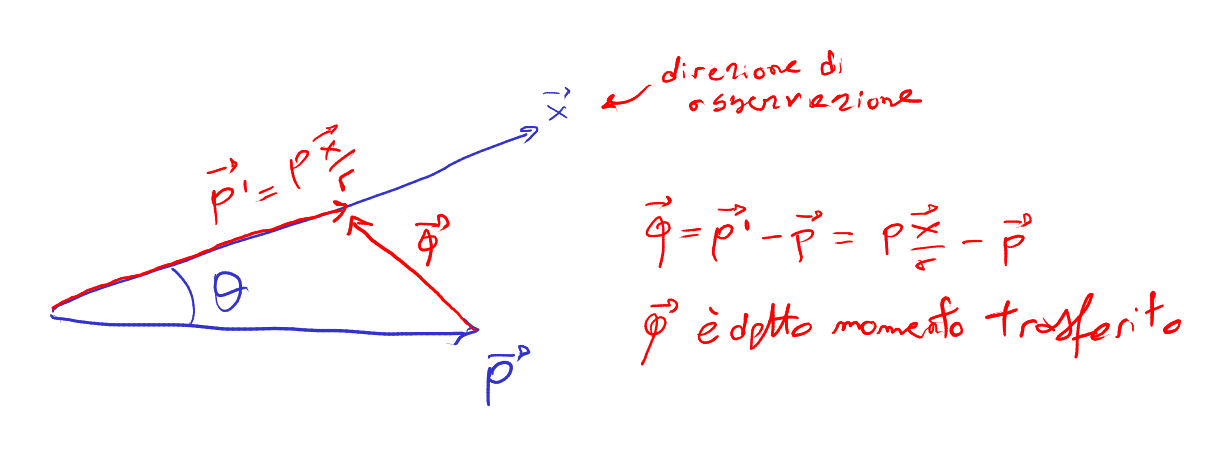 direzione di
osservazione
x⃗
p⃗' = p x⃗/r
q⃗
θ
p⃗
q⃗ = p⃗' − p⃗ = p x⃗/r − p⃗
q⃗ è detto momento trasferito